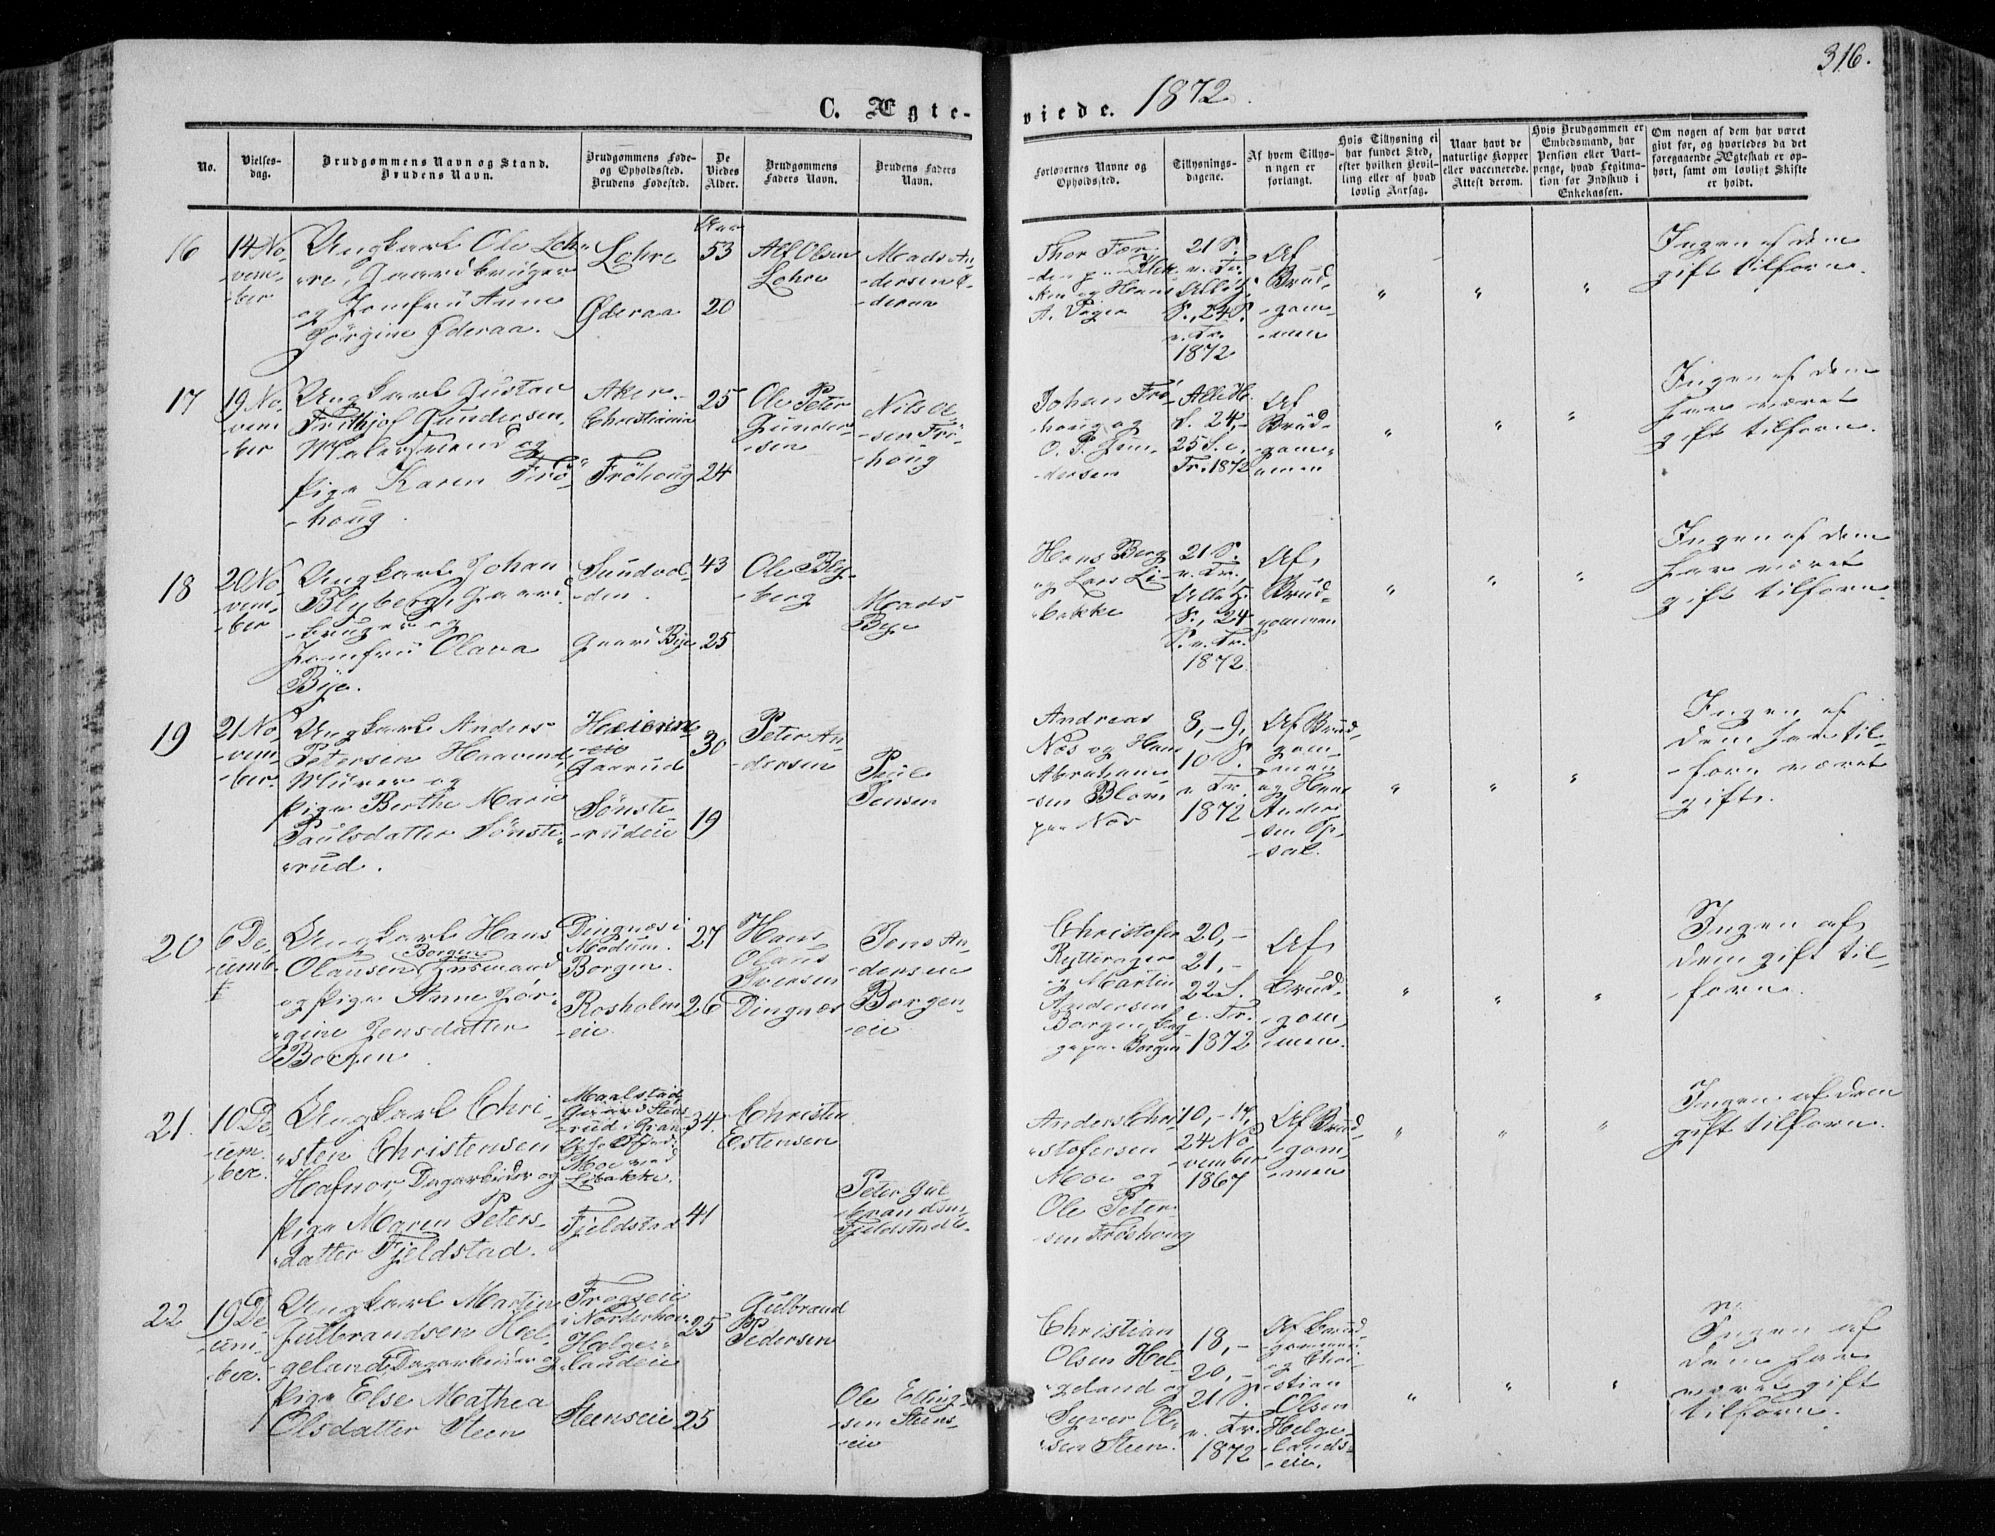 316.
C. Ægte-
viede. 1872.
No.
Vielses-
dag.
Brudgommens Navn og Stand.
Brudens Navn.
Brudgommens Føde-
og Opholdssted.
Brudens Fødested.
De
Viedes
Alder.
Brudgommens
Faders Navn.
Brudens Faders
Navn.
Forlovernes Navne og
Opholdssted.
Tillysnings-
dagene.
Af hvem Tillys-
ningen er
forlangt.
Hvis Tillysning ei
har fundet Sted,
efter hvilken Bevil-
ling eller af hvad
lovlig Aarsag.
Naar havt de
naturlige Kopper
eller vaccinerede.
Attest derom.
Hvis Brudgommen er
Embedsmand, har
Pension eller Vart-
penge, hvad Legitima-
tion for Indskud i
Enkekassen.
Om nogen af dem har været
gift før, og hvorledes da det
foregaaende Ægteskab er op-
hørt, samt om lovligt Skifte
er holdt.
16
14 No-
vem-
ber
Ungkarl Ole Loh-
re, Gaardbruger
og Jomfru Anne
Jørgine Øderaa.
Lohre
Øderaa
Aar
53
20
Alf Olsen
Lohre
Mads An-
dersen Ø-
deraa
Thor
og Hans
A.
21 S.
e. Tr.
Alle H.
S., 24 S.
e. Tr.
1872
Af
Brud-
gom-
men
"
"
"
Ingen af dem
gift tilforn.
17
19 No-
vem
ber
Ungkarl Gustav
Frithjof Gundersen,
Malersvend og
Pige Karen Frö-
houg.
Aker.
Christiania
Fröhoug
25
24
Ole Peter
Gunder-
sen
Nils Ol-
sen Frö-
houg
Johan Frö-
houg og
O. P. Gun-
dersen
Alle H.
S. 24,-
25 S. e.
Tr. 1872
Af
Brud-
gom-
men
"
"
"
Ingen af dem
har været
gift tilforn.
18
20 No-
vem-
ber
Ungkarl Johan
Blyberg, Gaard-
bruger og
Jomfru Olava
Bye.
Sundvol-
den.
Gaard Bye
43
25
Ole Bly-
berg
Mads
Bye
Hans Berg
og Lars Li-
bakke
21 S.
e. Tr.,
Alle H.
S., 24
S. e. Tr.
1872.
Af
Brud-
gommen
"
"
"
Ingen af dem
har været
gift tilforn.
19
21 No-
vem-
ber.
Ungkarl Anders
Petersen Haavind,
Murer og
Pige Berthe Marie
Paulsdatter Sönste-
rud.
Gaarud
Sönste-
rudeie
30
19
Peter An-
dersen
Paul
Jensen
Andreas
Næs og Hans
Abraham-
sen Blom
paa Næs
8,- 9,
10 S.
e. Tr.
1872
Af Brud-
gom-
men
og Hans
Ander-
sen Op-
sal.
"
"
"
Ingen af
dem har til-
forn været
gift.
20
6 De-
cemb-
r
Ungkarl Hans
Borgen
Olausen Husmand
og Pige Anne Jör-
gine Jensdatter
Borgen
Dingnæs i
Modum.
Borgen
Rosholm-
eie.
27
26
Hans
Olaus
Iversen
Dingnæs
Jens An-
dersen
Borgen-
eie
Christofer
Rytterager
og Martin
Andersen
Borgen
paa Borgen
20,-
21,-
22 S.
e. Tr.
1872
Af
Brud-
gom-
men.
"
"
"
Ingen af
dem gift til-
forn.
21.
10 De-
cem-
ber.
Ungkarl Chri-
sten Christensen
Hafnor, Dagarbeider og
Pige Maren Peters-
datter Fjeldstad.
Maalstad,
Gaard Steens-
rud i Gran,
Moe ved
Libakke.
Fjeldstad
34.
41
Christen
Estensen
Peter Gul-
brandsen
Fjeldstad
Anders Chri-
stofersen
Moe og
Ole Peter-
sen Fröshoug
10,- 17,
24 No-
vember
1867
Af Brud-
gom-
men
"
"
"
Ingen af dem
gift tilforn.
22
19 De-
cem-
ber.
Ungkarl Martin
Gulbrandsen Hel-
geland, Dagarbeider og
Pige Else Mathea
Olsdatter Steen
Frogseie
i Norderhov.
Helge-
landeie
Steenseie
25
25
Gulbrand
Pedersen
Ole Elling-
sen Steens-
eie
Christian
Olsen Hel-
geland og
Syver Ol-
sen Steen.
18,-
20,-
21 S.
e. Tr.
1872
Af Brud-
gommen
og Chri-
stian
Olsen
Helge-
lands-
eie.
"
"
"
Ingen af
dem har
været gift
tilforn.